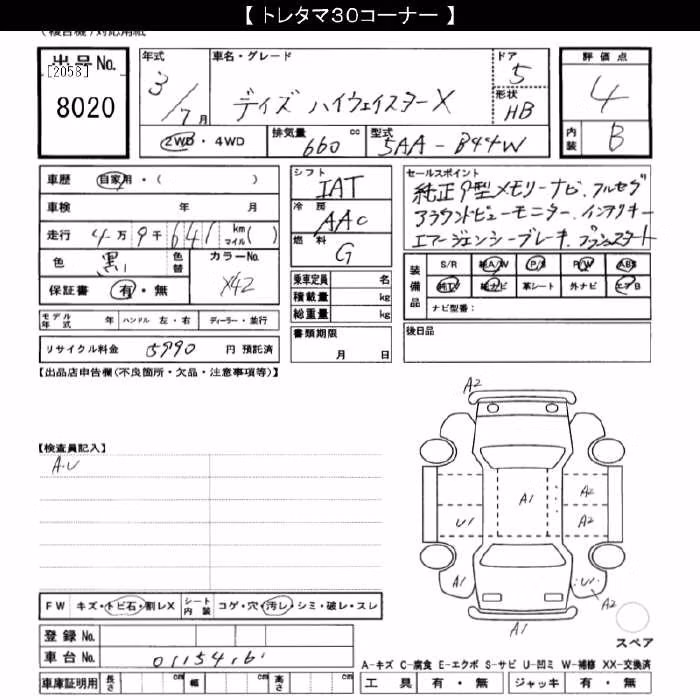 【 トレタマ３０コーナー 】
出品No.
[2058]
8020
年式
3/7月
車名・グレード
デイズ ハイウェイスターX
ドア
5
形状
HB
2WD・4WD
排気量
660 cc
型式
5AA-B44W
評価点
4
内装
B
車歴 自家用・( )
車検 年 月
走行 4万9千641 km マイル( )
色 黒 色替
カラーNo.
X42
保証書 有・無
シフト
IAT
冷房
AAC
燃料
G
乗車定員 名
積載量 kg
総重量 kg
書類期限
月 日
セールスポイント
純正9型メモリーナビ.フルセグ
アラウンドビューモニター.インテリキー
エマージェンシーブレーキ.プッシュスタート
装備品
S/R 純A/W P/S P/W ABS
純TV 純ナビ 革シート 外ナビ エアB
ナビ型番:
後日品
モデル年式 年 ハンドル 左・右 ディーラー・並行
リサイクル料金 5990 円 預託済
【出品店申告欄(不良箇所・欠品・注意事項等)】
【検査員記入】
A.U
A2
A1
A2
A2
U1
A1
U1
A2
A1
スペア
FW キズ・トビ石・割レX
シート内装 コゲ・穴・汚レ・シミ・破レ・スレ
登録No.
車台No. 0115416
車庫証明用 長さ cm 幅 cm 高さ cm
A-キズ C-腐食 E-エクボ S-サビ U-凹ミ W-補修 XX-交換済
工具 有・無 ジャッキ 有・無